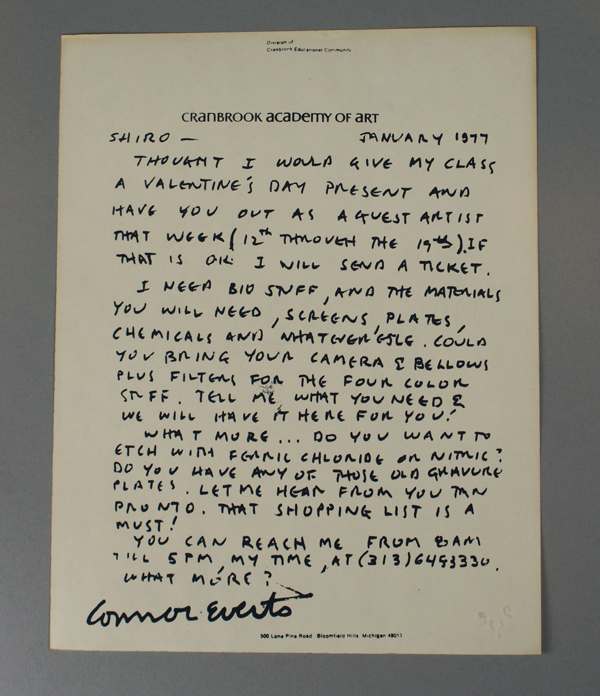 Division of
Cranbrook Educational Community
CRANBROOK ACADEMY OF ART
SHIRO — JANUARY 1977
THOUGHT I WOULD GIVE MY CLASS
A VALENTINE'S DAY PRESENT AND
HAVE YOU OUT AS A GUEST ARTIST
THAT WEEK (12th THROUGH THE 19th). IF
THAT IS OK I WILL SEND A TICKET.
I NEED BIO STUFF, AND THE MATERIALS
YOU WILL NEED, SCREENS, PLATES,
CHEMICALS AND WHATEVER ELSE. COULD
YOU BRING YOUR CAMERA & BELLOWS
PLUS FILTERS FOR THE FOUR COLOR
STUFF. TELL ME WHAT YOU NEED &
WE WILL HAVE IT HERE FOR YOU!
WHAT MORE... DO YOU WANT TO
ETCH WITH FERRIC CHLORIDE OR NITRIC?
DO YOU HAVE ANY OF THOSE OLD GRAVURE
PLATES. LET ME HEAR FROM YOU
PRONTO. THAT SHOPPING LIST IS A
MUST!
YOU CAN REACH ME FROM 8AM
TILL 5PM, MY TIME, AT (313) 6493330.
WHAT MORE?
Connor Everts
500 Lone Pine Road Bloomfield Hills, Michigan 48013